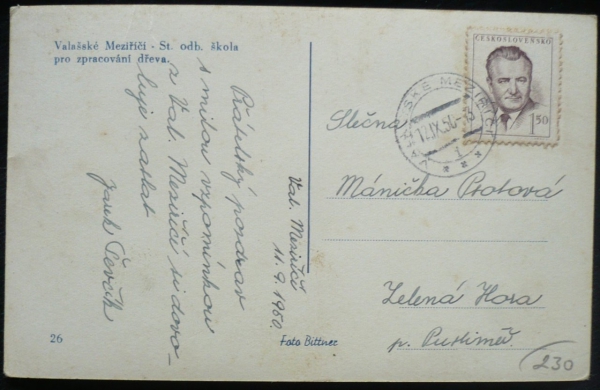 Valašské Meziříčí - St. odb. škola
pro zpracování dřeva.
Přátelský pozdrav
s milou vzpomínkou
z Val. Meziříčí si dovo-
luje zaslat
Val. Meziříčí
11. 9. 1950.
26
Foto Bittner
ČESKOSLOVENSKO
1.50
17.IX.50
Slečna
Mánička Protová
Zelená Hora
p. Pustiměř.
230